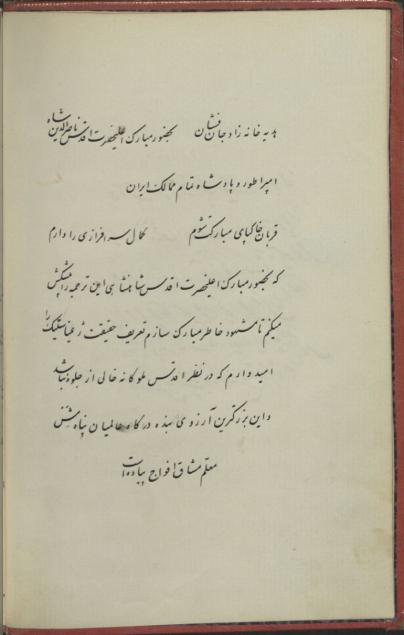 هدیه خانه زاد جان فشان بحضور مبارک اعلیحضرت اقدس ناصرالدین شاه
امپراطور و پادشاه تمام ممالک ایران
قربان خاکپای مبارکت شوم کمال سرافرازی را دارم
که بحضور مبارک اعلیحضرت اقدس شاهنشاهی این ترجمه را پیشکش
میکنم تا مشهود خاطر مبارک سازم تعریف حقیقت ژیمناستیک را
امیدوارم که در نظر اقدس ملوکانه خالی از جلوه نباشد
و این بزرکترین آرزوی بنده درکاه عالمیان پناه
معلم مشاق افواج پیاده است